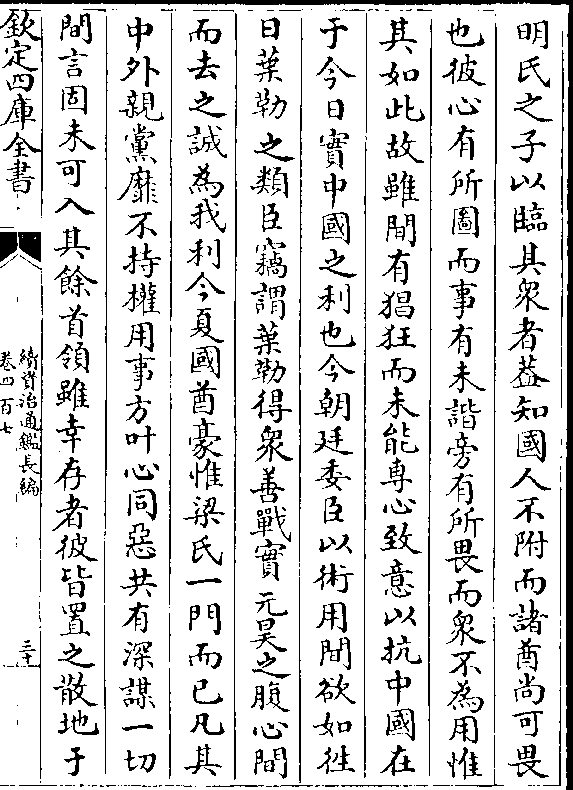 明氏之子以臨其衆者葢知國人不附而諸酋尚可畏
也彼心有所圖而事有未諧旁有所畏而衆不為用惟
其如此故雖間有猖狂而未能專心致意以抗中國在
于今日實中國之利也今朝廷委臣以術用間欲如徃
日葉勒之類臣竊謂葉勒得衆善戰實元昊之腹心間
而去之誠為我利今夏國酋豪惟梁氏一門而已凡其
中外親黨靡不持權用事方叶心同惡共有深謀一切
間言固未可入其餘首領雖幸存者彼皆置之散地于
欽定四庫全書
續資治通鑑長編
卷四百七
三十